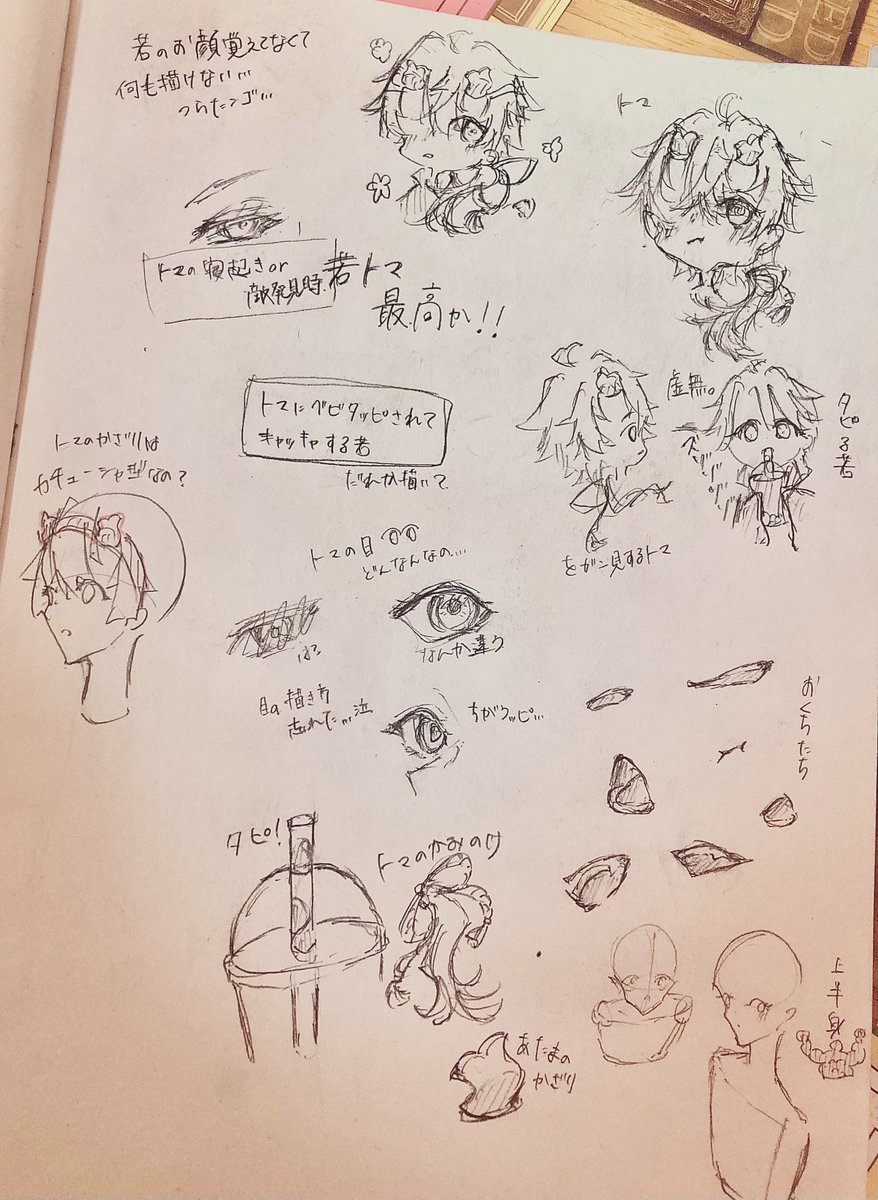 ED
D
若のお顔覚えてなくて
何も描けない…
つらたンゴ…
トマ
トマの寝起きor
敵発見時
若トマ
最高か!!
トマにベビタッピされて
キャッキャする若
だれか描いて
虚無。
ズゾゾ
タピる若
をガン見するトマ
トマのかざりは
カチューシャ型なの?
トマの目
どんなんなの…
なんか違う
目の描き方
忘れた…泣
ちがウッピ…
おくちたち
タピ!
トマのかみのけ
あたまの
かざり
上半身